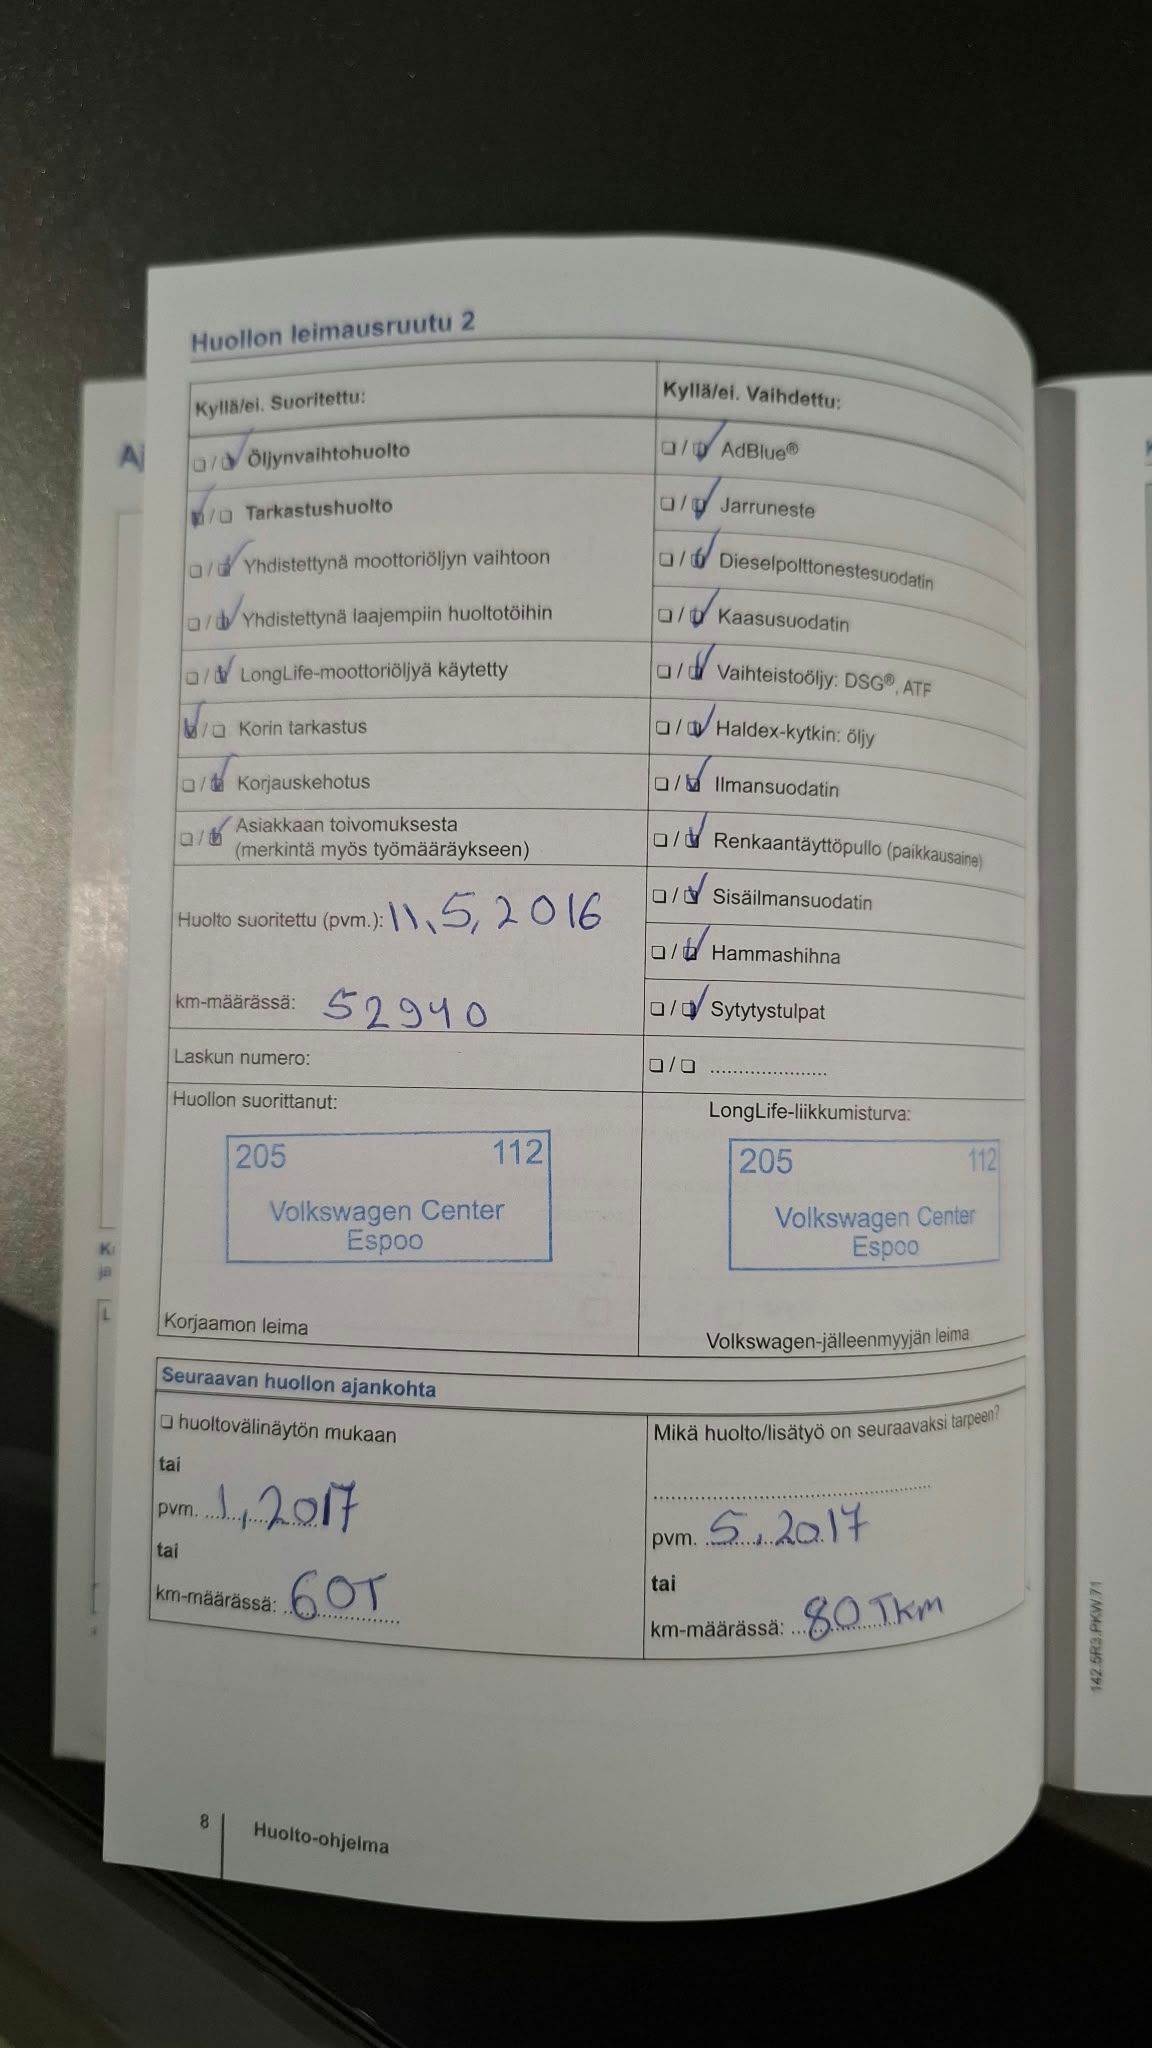 Huollon leimausruutu 2
Kyllä/ei. Suoritettu:
☐ / ☑ Öljynvaihtohuolto
☑ / ☐ Tarkastushuolto
☐ / ☑ Yhdistettynä moottoriöljyn vaihtoon
☐ / ☑ Yhdistettynä laajempiin huoltotöihin
☐ / ☑ LongLife-moottoriöljyä käytetty
☑ / ☐ Korin tarkastus
☐ / ☑ Korjauskehotus
☐ / ☑ Asiakkaan toivomuksesta
(merkintä myös työmääräykseen)
Huolto suoritettu (pvm.): 11,5,2016
km-määrässä: 52940
Laskun numero:
Kyllä/ei. Vaihdettu:
☐ / ☑ AdBlue®
☐ / ☑ Jarruneste
☐ / ☑ Dieselpolttonestesuodatin
☐ / ☑ Kaasusuodatin
☐ / ☑ Vaihteistoöljy: DSG®, ATF
☐ / ☑ Haldex-kytkin: öljy
☐ / ☑ Ilmansuodatin
☐ / ☑ Renkaantäyttöpullo (paikkausaine)
☐ / ☑ Sisäilmansuodatin
☐ / ☑ Hammashihna
☐ / ☑ Sytytystulpat
☐ / ☐ ......................
Huollon suorittanut:
205 112
Volkswagen Center
Espoo
Korjaamon leima
LongLife-liikkumisturva:
205 112
Volkswagen Center
Espoo
Volkswagen-jälleenmyyjän leima
Seuraavan huollon ajankohta
☐ huoltovälinäytön mukaan
tai
pvm. 1,2017
tai
km-määrässä: 60T
Mikä huolto/lisätyö on seuraavaksi tarpeen?
pvm. 5.2017
tai
km-määrässä: 80 TKM
8 Huolto-ohjelma
142.5R3.PKW.71
Aj